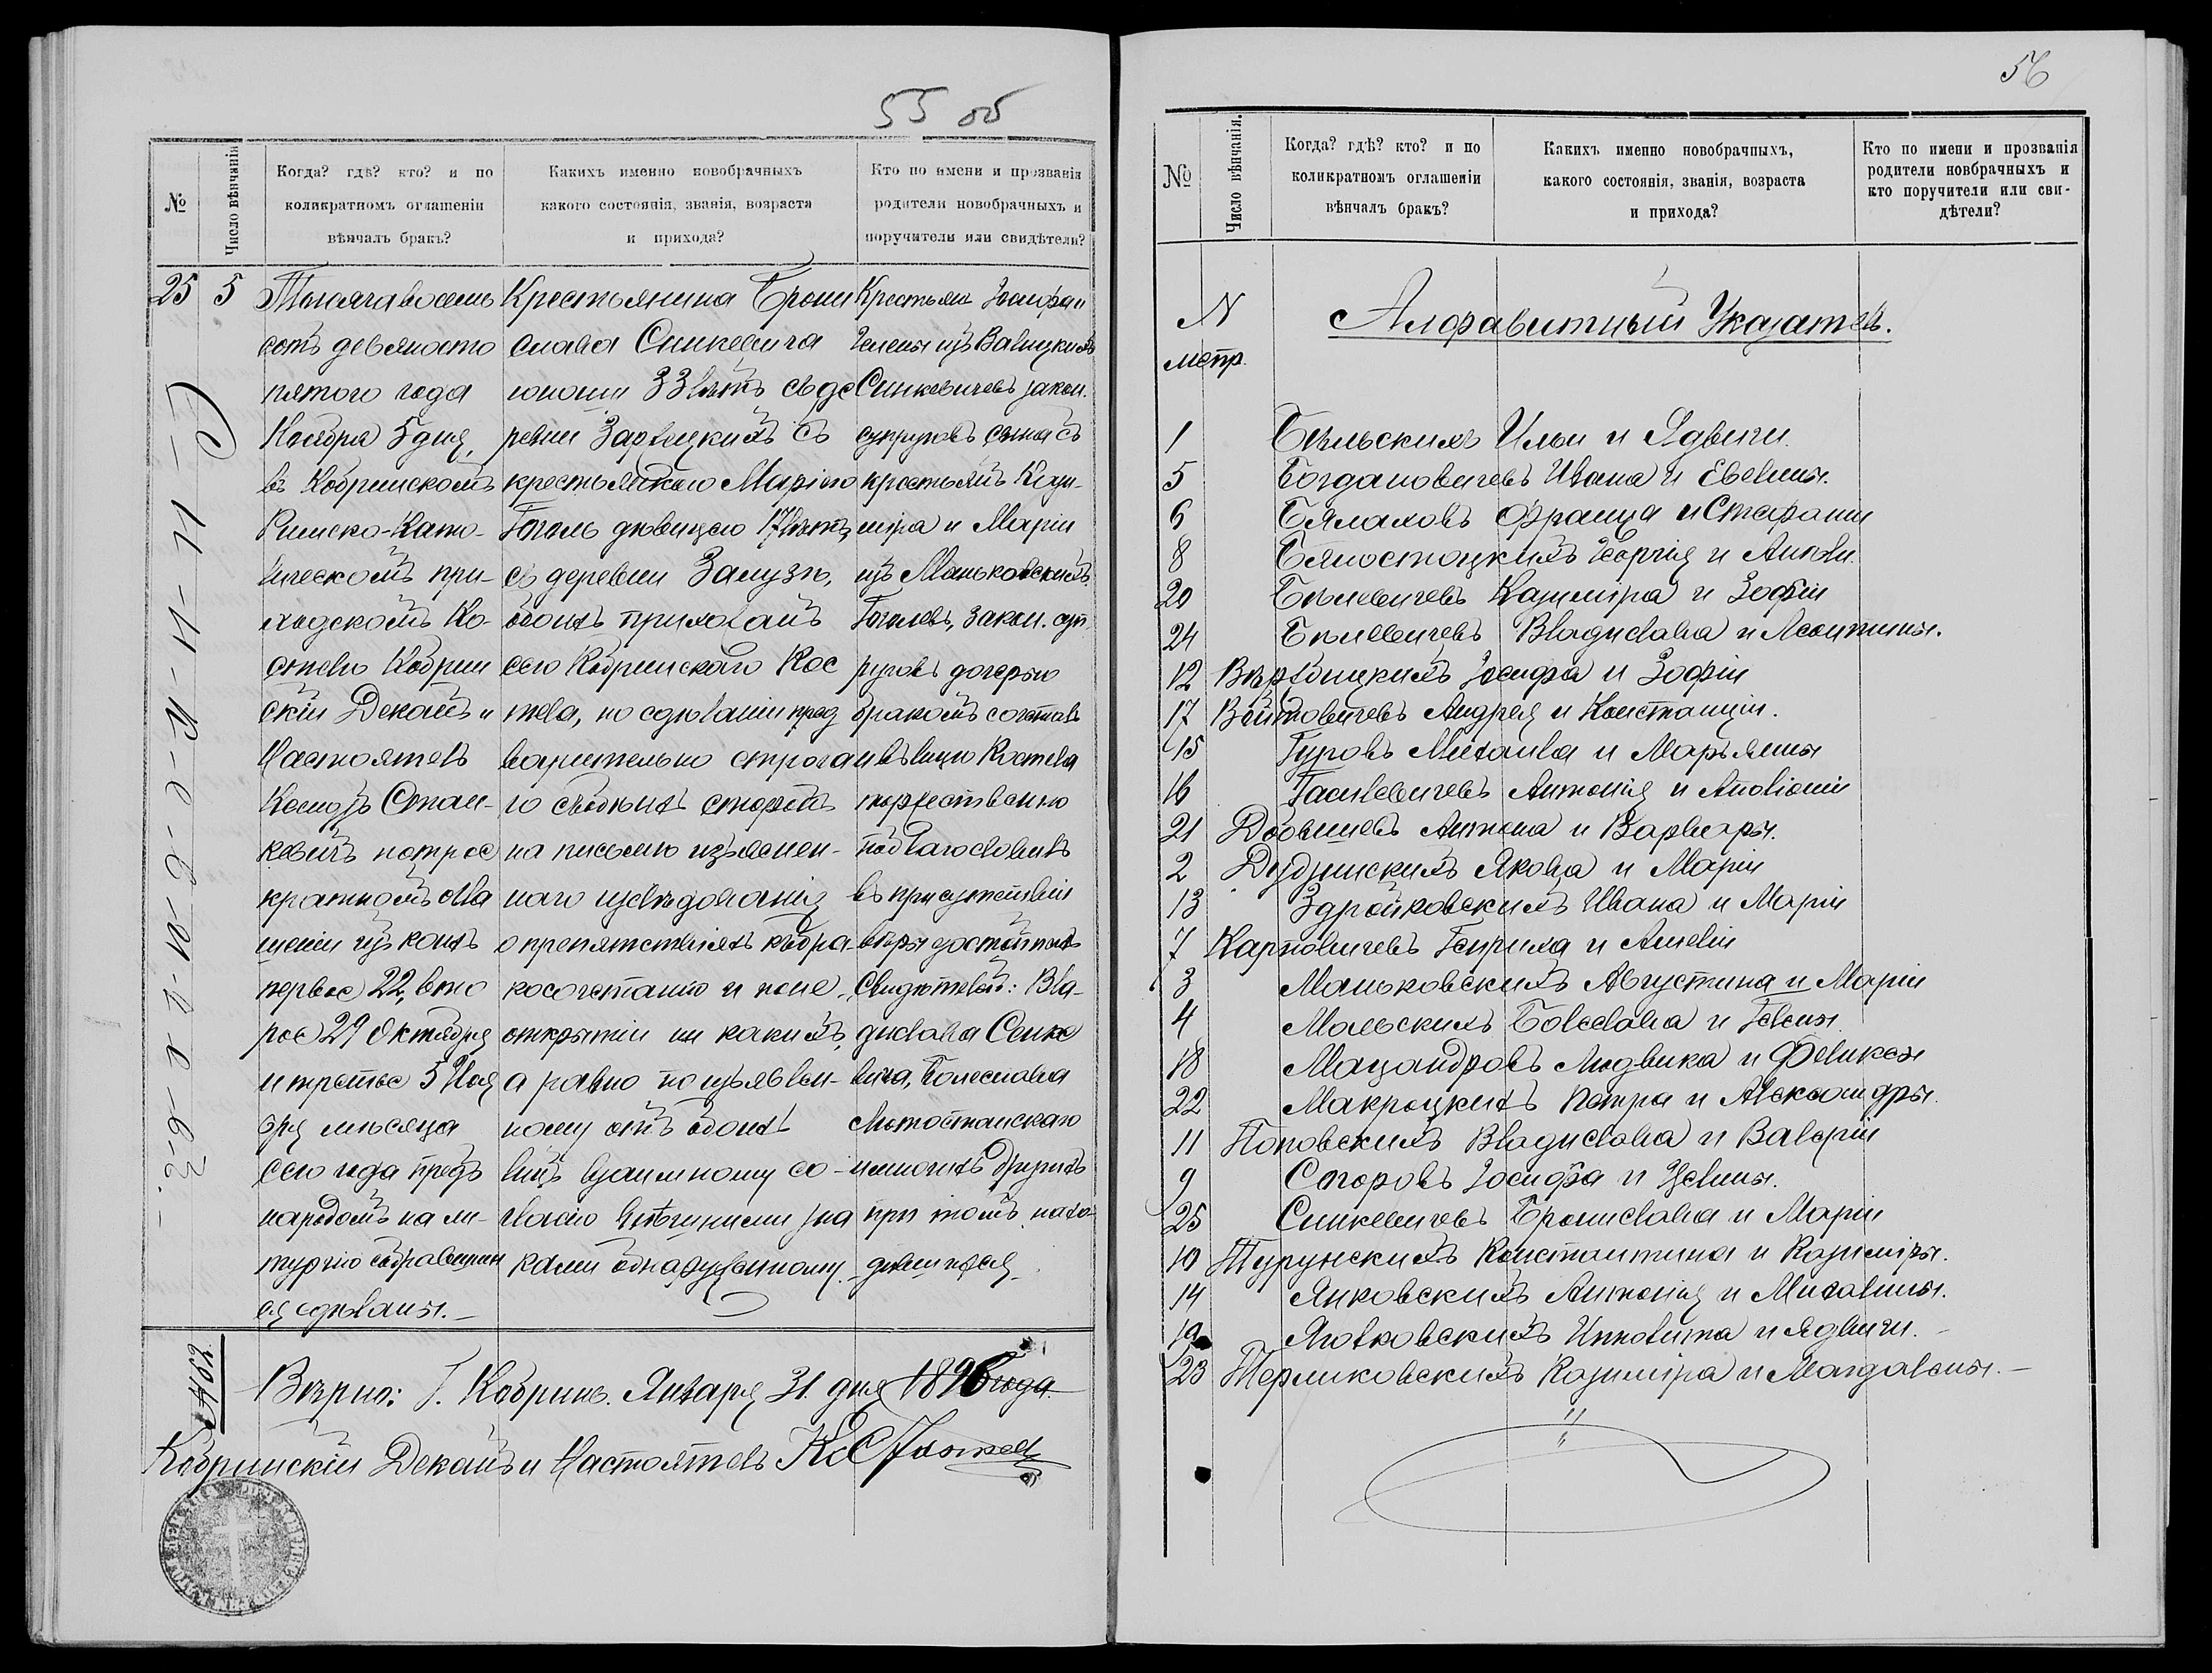 55 об
№
Число вѣнчанія
Когда? гдѣ? кто? и по
коликратномъ оглашеніи
вѣнчалъ бракъ?
Какихъ именно новобрачныхъ
какого состоянія, званія, возраста
и прихода?
Кто по имени и прозванія
родители новобрачныхъ и
поручители или свидѣтели?
25
5
Тысяча восемь
сотъ девяносто
пятого года
Ноября 5 дня,
въ Кобринскомъ
Римско-Като-
лическомъ при-
ходскомъ Ко-
стелѣ Кобрин
скій Деканъ и
Настоятель
Ксендзъ Стан-
кевичъ потрое
кратномъ огла
шеніи изъ коихъ
первое 22, вто
рое 29 Октября
и третье 5 Ноя
бря мѣсяца
сего года предъ
народомъ на ли-
тургію собравшим
ся сдѣланы.
Крестьянина Брони
слава Синкевича
юношу 33 лѣтъ съ де
ревни Зарѣцкихъ съ
крестьянкою Маріею
Гоголь дѣвицею 17 лѣтъ
съ деревни Залузъ,
обоихъ прихожанъ
сего Кобринскаго Кос
тела, по сдѣланіи пред
варительно строга
го съ обоихъ сторонъ
на письмѣ изъяснен-
наго изслѣдованія
о препятствіяхъ къ бра-
косочетанію и по не-
открытіи ни какихъ,
а равно по изъявлен-
ному отъ обоихъ
лицъ взаимному со-
гласію внѣшними зна
ками обнаруженному
Крестьянъ Іосифа и
Гелены изъ Валицкихъ
Синкевичевъ закон.
супруговъ сына съ
крестьянъ Кази-
міра и Маріи
изъ Маньковскихъ
Гоголевъ, закон. суп
руговъ дочерью
бракомъ сочеталъ
и въ лицѣ Костела
торжественно
поблагословилъ
въ присутствіи
вѣры достойныхъ
Свидѣтелей: Вла-
дислава Синке
вича, Болеслава
Лютостанскаго
и многихъ другихъ
при томъ нахо-
дившихся
№ 62.
Вѣрно: Г. Кобринъ. Января 31 дня 1896 года
Кобринскій Деканъ и Настоятель
56
№
Число вѣнчанія.
Когда? гдѣ? кто? и по
коликратномъ оглашеніи
вѣнчалъ бракъ?
Какихъ именно новобрачныхъ,
какого состоянія, званія, возраста
и прихода?
Кто по имени и прозванія
родители новбрачныхъ и
кто поручители или сви-
дѣтели?
N
метр.
Алфавитный Указатель.
1 Бѣльскихъ Ильи и Ядвиги.
5 Богдановичевъ Ивана и Евелины.
6 Бялаховъ Франца и Стефаніи
8 Бялостоцкихъ Георгія и Анели.
20 Бѣлевичевъ Казиміра и Зофіи
24 Бѣлевичевъ Владислава и Леонтины.
12 Вержбицкихъ Іосифа и Зофіи
17 Войтовичевъ Андрея и Констанціи.
15 Гуровъ Михаила и Марьянны
16 Гасилевичевъ Антонія и Аполіоніи
21 Довбишевъ Антона и Варвары.
2 Дудзинскихъ Якова и Маріи
13 Здройковскихъ Ивана и Маріи
7 Карповичевъ Генриха и Амеліи
3 Маньковскихъ Августина и Маріи
4 Мальскихъ Болеслава и Гелены.
18 Мацандровъ Людвика и Феликсы
22 Макрецкихъ Петра и Александры.
11 Поповскихъ Владислава и Валеріи
9 Сигоровъ Іосифа и Целины.
25 Синкевичевъ Бронислава и Маріи
10 Турунскихъ Константина и Казиміры.
14 Янковскихъ Антонія и Михалины.
19 Яголковскихъ Ипполита и Ядвиги.
23 Термиковскихъ Казиміра и Магдалены.